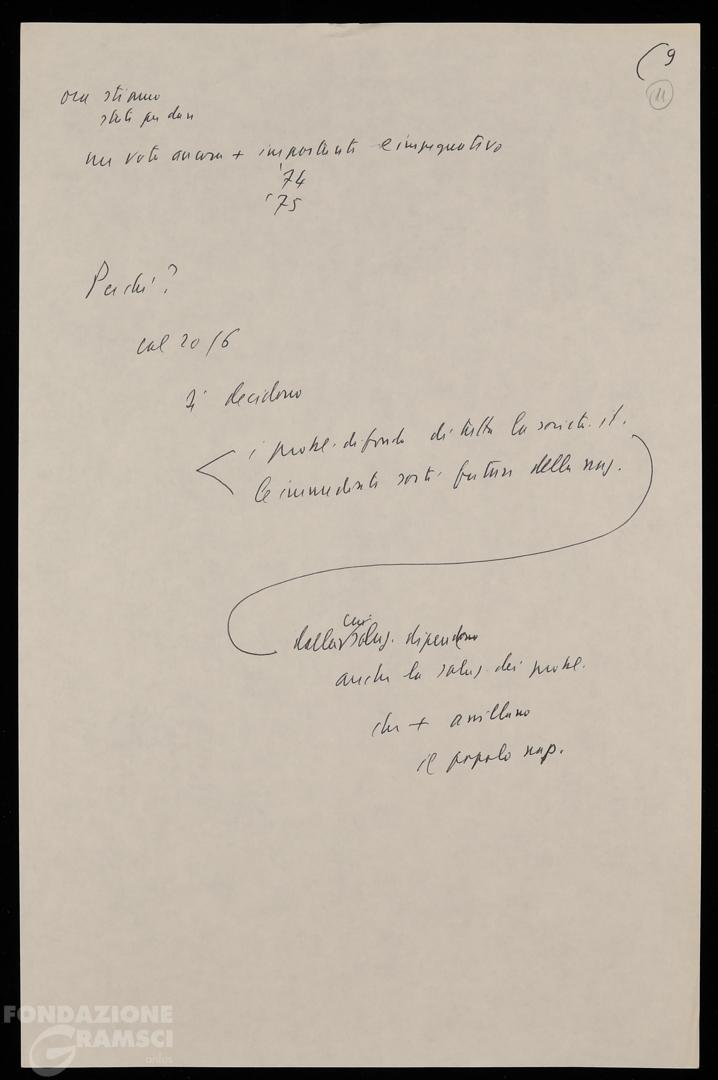 (9
11
ora stiamo
state per dare
un voto ancora + importante e impegnativo
'74
'75
Perché?
col 20/6
si decidono
i probl. di fondo di tutta la società it.
le immediate sorti future della naz.
dalla cui soluz. dipendono
anche la soluz. dei probl.
che + assillano
il popolo nap.
FONDAZIONE
GRAMSCI
onlus